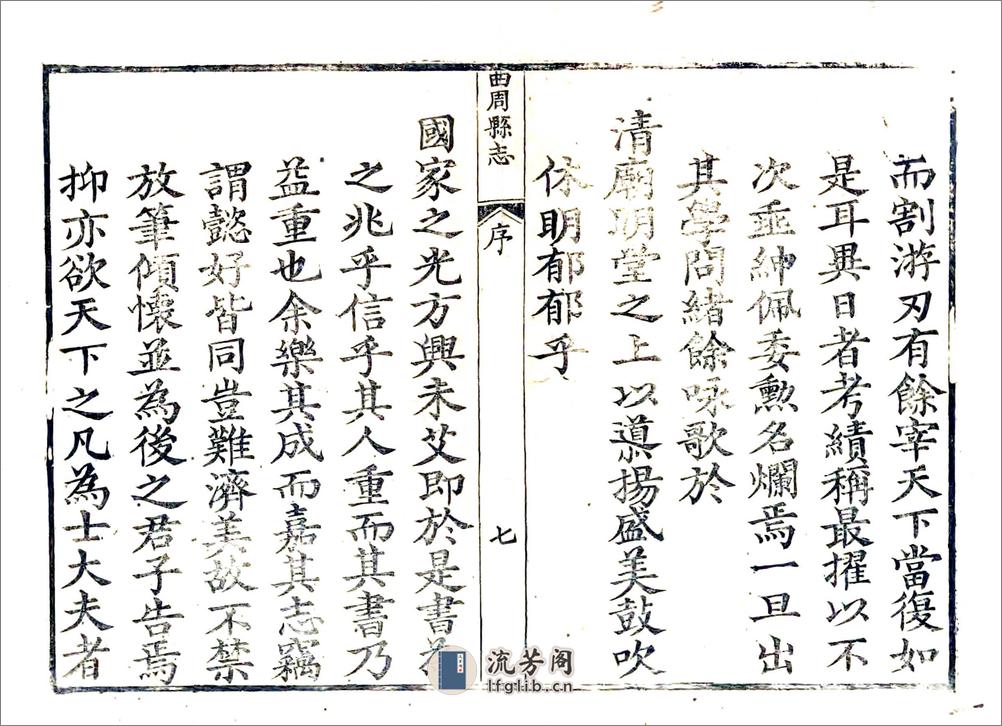 而割游刃有餘宰天下當復如
是耳異日者考績稱最擢以不
次垂紳佩委勲名爛焉一旦出
其學問緒餘咏歌於
清廟明堂之上以導揚盛美鼓吹
休明郁郁乎
曲周縣志
序
七
國家之光方興未艾即於是書為
之兆乎信乎其人重而其書乃
益重也余樂其成而嘉其志竊
謂懿好皆同豈難濟美故不禁
放筆傾懷並為後之君子告焉
抑亦欲天下之凡為士大夫者
流芳阁
lfglib.cn